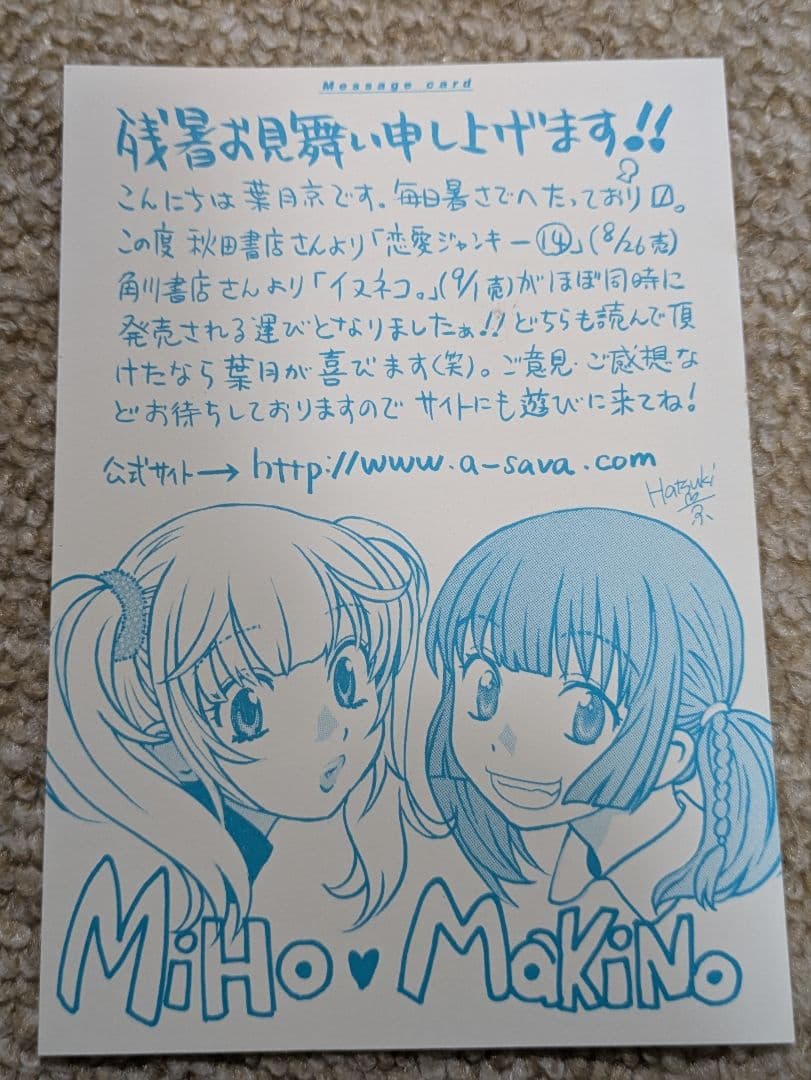 Message card
残暑お見舞い申し上げます!!
こんにちは 葉月京です。毎日暑さでへたっており〼。
この度 秋田書店さんより「恋愛ジャンキー⑭」(8/26売)
角川書店さんより「イヌネコ。」(9/1売)がほぼ同時に
発売される運びとなりましたぁ!! どちらも読んで頂
けたなら葉月が喜びます(笑)。ご意見・ご感想な
どお待ちしておりますので サイトにも遊びに来てね!
公式サイト→ http://www.a-sava.com
Hatsuki
京
MiHo♥MaKiNo